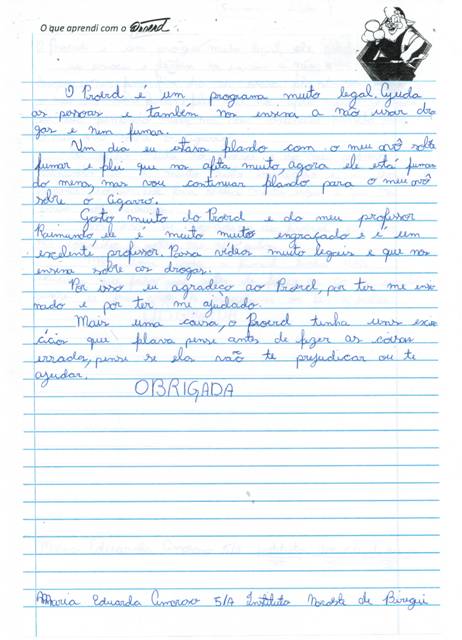 O que aprendi com o Proerd
O Proerd é um programa muito legal. Ajuda
as pessoas e também nos ensina a não usar dro
gas e nem fumar.
Um dia eu estava flando com o meu avô sobre
fumar e flei que nos afeta muito, agora ele está fuman
do menos, mas vou continuar flando para o meu avô
sobre o cigarro.
Gosto muito do Proerd e do meu professor
Raimundo, ele é muito muito engraçado e é um
exelente professor. Passa vídeos muito legais e que nos
ensina sobre as drogas.
Por isso eu agradeço ao Proerd, por ter me ensi
nado e por ter me ajudado.
Mais uma coisa, o Proerd tinha uns exer
cícios que flava pense antes de fazer as coisas
erradas, pense se elas vão te prejudicar ou te
ajudar.
OBRIGADA
Maria Eduarda Amoroso 5/A Instituto Noroeste de Birigui